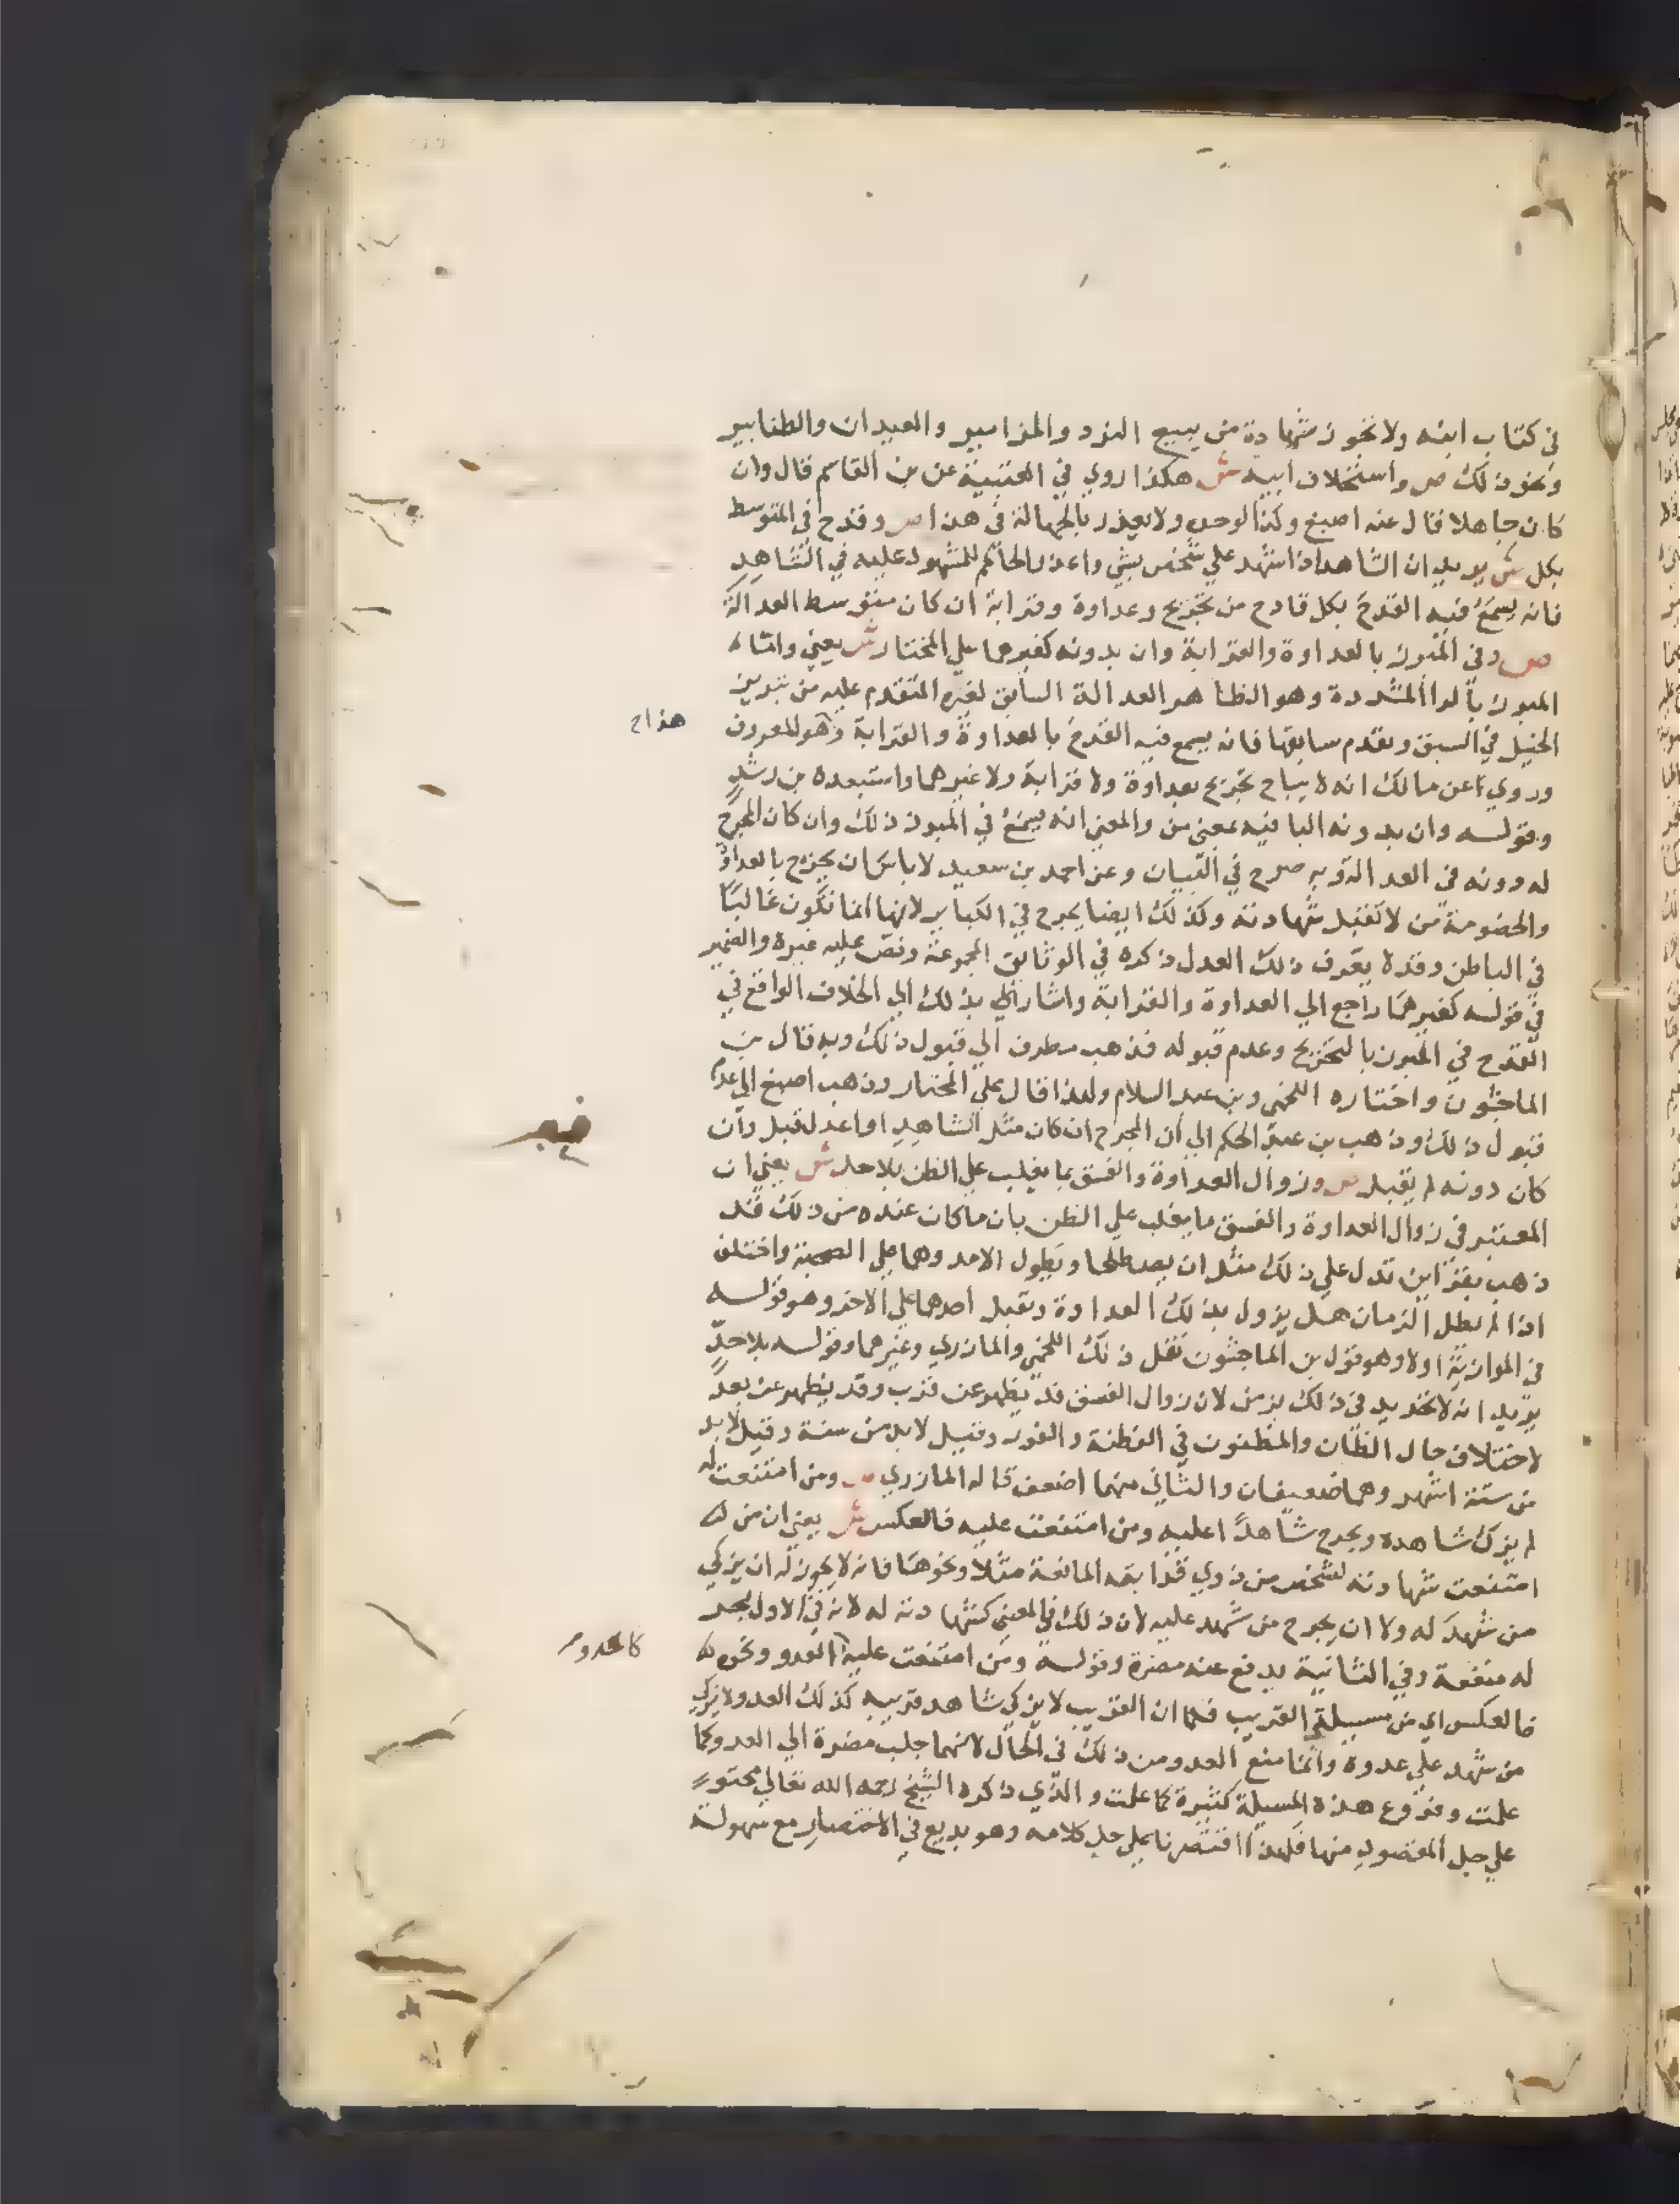 في كتاب ابنه ولا تجوز شهادة من يبيع النرد والمزامير والعيدان والطنابير
ونحو ذلك ص واستخلاف ابيه ش هكذا روي في العتبية عن بن القاسم قال وان
كان جاهلا قال عنه اصبغ وكذا لوحده ولا يعذر بالجهالة في هذا ص وقدح في المتوسط
بكل ش يريد ان الشاهد اذا شهد علي شخص بشي واعذر الحاكم للمشهود عليه في الشاهد
فانه يسمع فيه القدح بكل قادح من تجريح وعداوة وقرابة ان كان متوسط العدالة
ص وفي المبرز بالعداوة والقرابة وان بدونه كغيرهما علي المختار ش يعني واما
المبرز بالرا المشددة وهو الظاهر العدالة السابق لغيره المتقدم عليه من تبريز
الخيل في السبق وتقدم سابقها فانه يسمع فيه القدح بالعداوة والقرابة وهو المعروف
هذا ح
وروي عن مالك انه لا يباح تجريح بعداوة ولا قرابة ولا غيرهما واستبعده بن رشد
وقوله وان بدونه البا فيه بمعني من والمعني انه يسمع في المبرز ذلك وان كان المجرح
له دونه في العدالة وبه صرح في البيان وعن احمد بن سعيد لا باس ان يجرح بالعداوة
والخصومة من لا تقبل شهادته وكذلك ايضا يجرح في الكباير لانها انما تكون غالبا
في الباطن وقد لا يعرف ذلك العدل ذكره في الوثايق المجموعة ونص عليه غيره والضمير
في قوله كغيرهما راجع الي العداوة والقرابة واشار بذلك الي الخلاف الواقع في
القدح في المبرز بالتجريح وعدم قبوله فذهب مطرف الي قبول ذلك وبه قال بن
الماجشون واختاره اللخمي وبن عبد السلام ولهذا قال علي المختار وذهب اصبغ الي عدم
قبول ذلك وذهب بن عبد الحكم الي ان المجرح ان كان مثل الشاهد او اعدل قبل وان
كان دونه لم يقبل ص وزوال العداوة والفسق بما يغلب علي الظن بلا حد ش يعني ان
المعتبر في زوال العداوة والفسق ما يغلب علي الظن بان ما كان عنده من ذلك قد
ذهب بقراين تدل علي ذلك مثل ان يصطلحا ويطول الامد وهما علي الصحبة واختلف
اذا لم يطل الزمان هل يزول بذلك العداوة وتقبل احدهما علي الاخر وهو قوله
في الموازية اولا وهو قول بن الماجشون نقل ذلك اللخمي والمازري وغيرهما وقوله بلا حد
يريد انه لا تحديد في ذلك بزمن لان زوال الفسق قد يظهر عن قرب وقد يظهر عن بعد
لاختلاف حال الظان والمظنون في الفطنة والغور وقيل لا بد من سنة وقيل لا بد
من ستة اشهد وهما ضعيفان والثاني منهما اضعف قاله المازري ص ومن امتنعت له
لم يزك شاهده ويجرح شاهدا عليه ومن امتنعت عليه فالعكس ش يعني ان من
امتنعت شهادته لشخص من ذوي قرابته المانعة مثلا ونحوها فانه لا يجوز له ان يزكي
من شهد له ولا ان يجرح من شهد عليه لان ذلك في المعني كشهادته له لانه في الاول يجر
له منفعة وفي الثانية يدفع عنه مضرة وقوله ومن امتنعت عليه العدو ونحوه
كالعدو
فالعكس اي من مسيلة القريب فكما ان القريب لا يزكي شاهد قريبه كذلك العدو لا يزكي
من شهد علي عدوه وانما منع العدو من ذلك في الحال لانهما جلب مضرة الي العدو كما
علمت وفروع هذه المسيلة كثيرة كما علمت والذي ذكره الشيخ رحمه الله تعالي محتو
علي جل المقصود منها فلهذا اقتصرنا علي حل كلامه وهو بديع في الاختصار مع سهولة